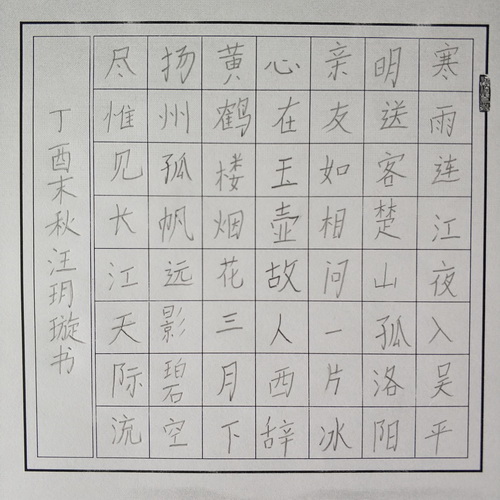 寒雨连江夜入吴平
明送客楚山孤洛阳
亲友如相问一片冰
心在玉壶故人西辞
黄鹤楼烟花三月下
扬州孤帆远影碧空
尽惟见长江天际流
丁酉末秋汪玥璇书